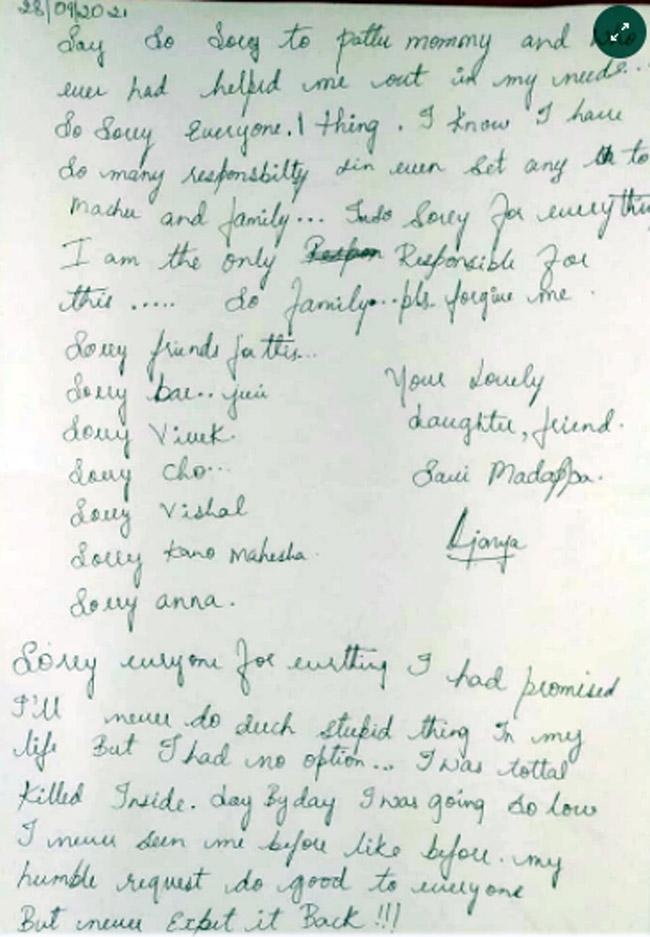 28/09/2021
Say So Sorry to pattu mommy and who
ever had helped me out in my needs...
So Sorry Everyone. 1 thing. I know I have
so many responsbilty din even set any to
Machu and family... Sorry for everything
I am the only Responsible for
this ..... So family... pls. forgive me.
Sorry friends for this...
Sorry bae..
Sorry Vivek.
Sorry Cho...
Sorry Vishal
Sorry Kano Mahesha.
Sorry anna.
Your Lovely
daughter, friend.
Savi Madappa.
Sorry everyone for evrthing I had promised
I'll never do such stupid thing In my
life But I had no option... I was tottal
killed Inside. day By day I was going so low
I never seen me before like before. my
humble request do good to everyone
But never Expet it Back !!!